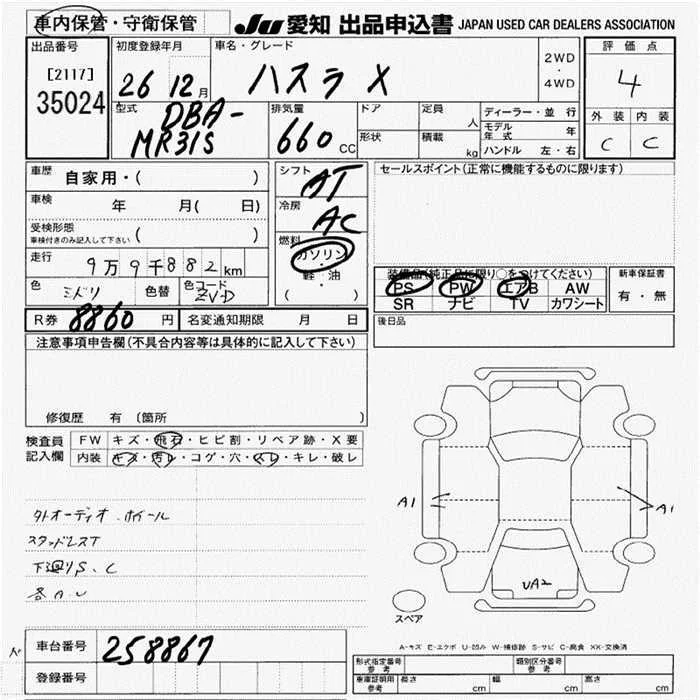 車内保管・守衛保管 JU 愛知 出品申込書 JAPAN USED CAR DEALERS ASSOCIATION
出品番号 初度登録年月 車名・グレード 2WD・4WD 評価点
[2117]
35024
26 12月 ハスラ X 4
型式 DBA-MR31S
排気量 660 CC
ドア 定員 人 ディーラー・並行
形状 積載 kg モデル年式 年
ハンドル 左・右
外装 内装
C C
車歴 自家用・( )
車検 年 月( 日)
受検形態 ( )
車検付きのみ記入して下さい
走行 9万9千882km
色 ミドリ 色替 色コード ZVD
シフト AT
冷房 AC
燃料 ガソリン・軽・油
セールスポイント(正常に機能するものに限ります)
装備品(純正品に限り○をつけてください) 新車保証書
PS PW エアB AW 有・無
SR ナビ TV カワシート
R券 8860円 名変通知期限 月 日
後日品
注意事項申告欄(不具合内容等は具体的に記入して下さい)
修復歴 有 〔箇所 〕
検査員記入欄
FW キズ・飛石・ヒビ割・リペア跡・X要
内装 キズ・汚レ・コゲ・穴・スレ・キレ・破レ
外オーディオ ホイール
スタッドレスT
下廻りS、C
各AU
A1 A1
UA2
スペア
A-キズ E-エクボ U-凹み W-補修跡 S-サビ C-腐食 XX-交換済
車台番号 258867
登録番号
形式指定番号 参考 類別区分番号 参考
車庫証明用 参考 長さ cm 幅 cm 高さ cm